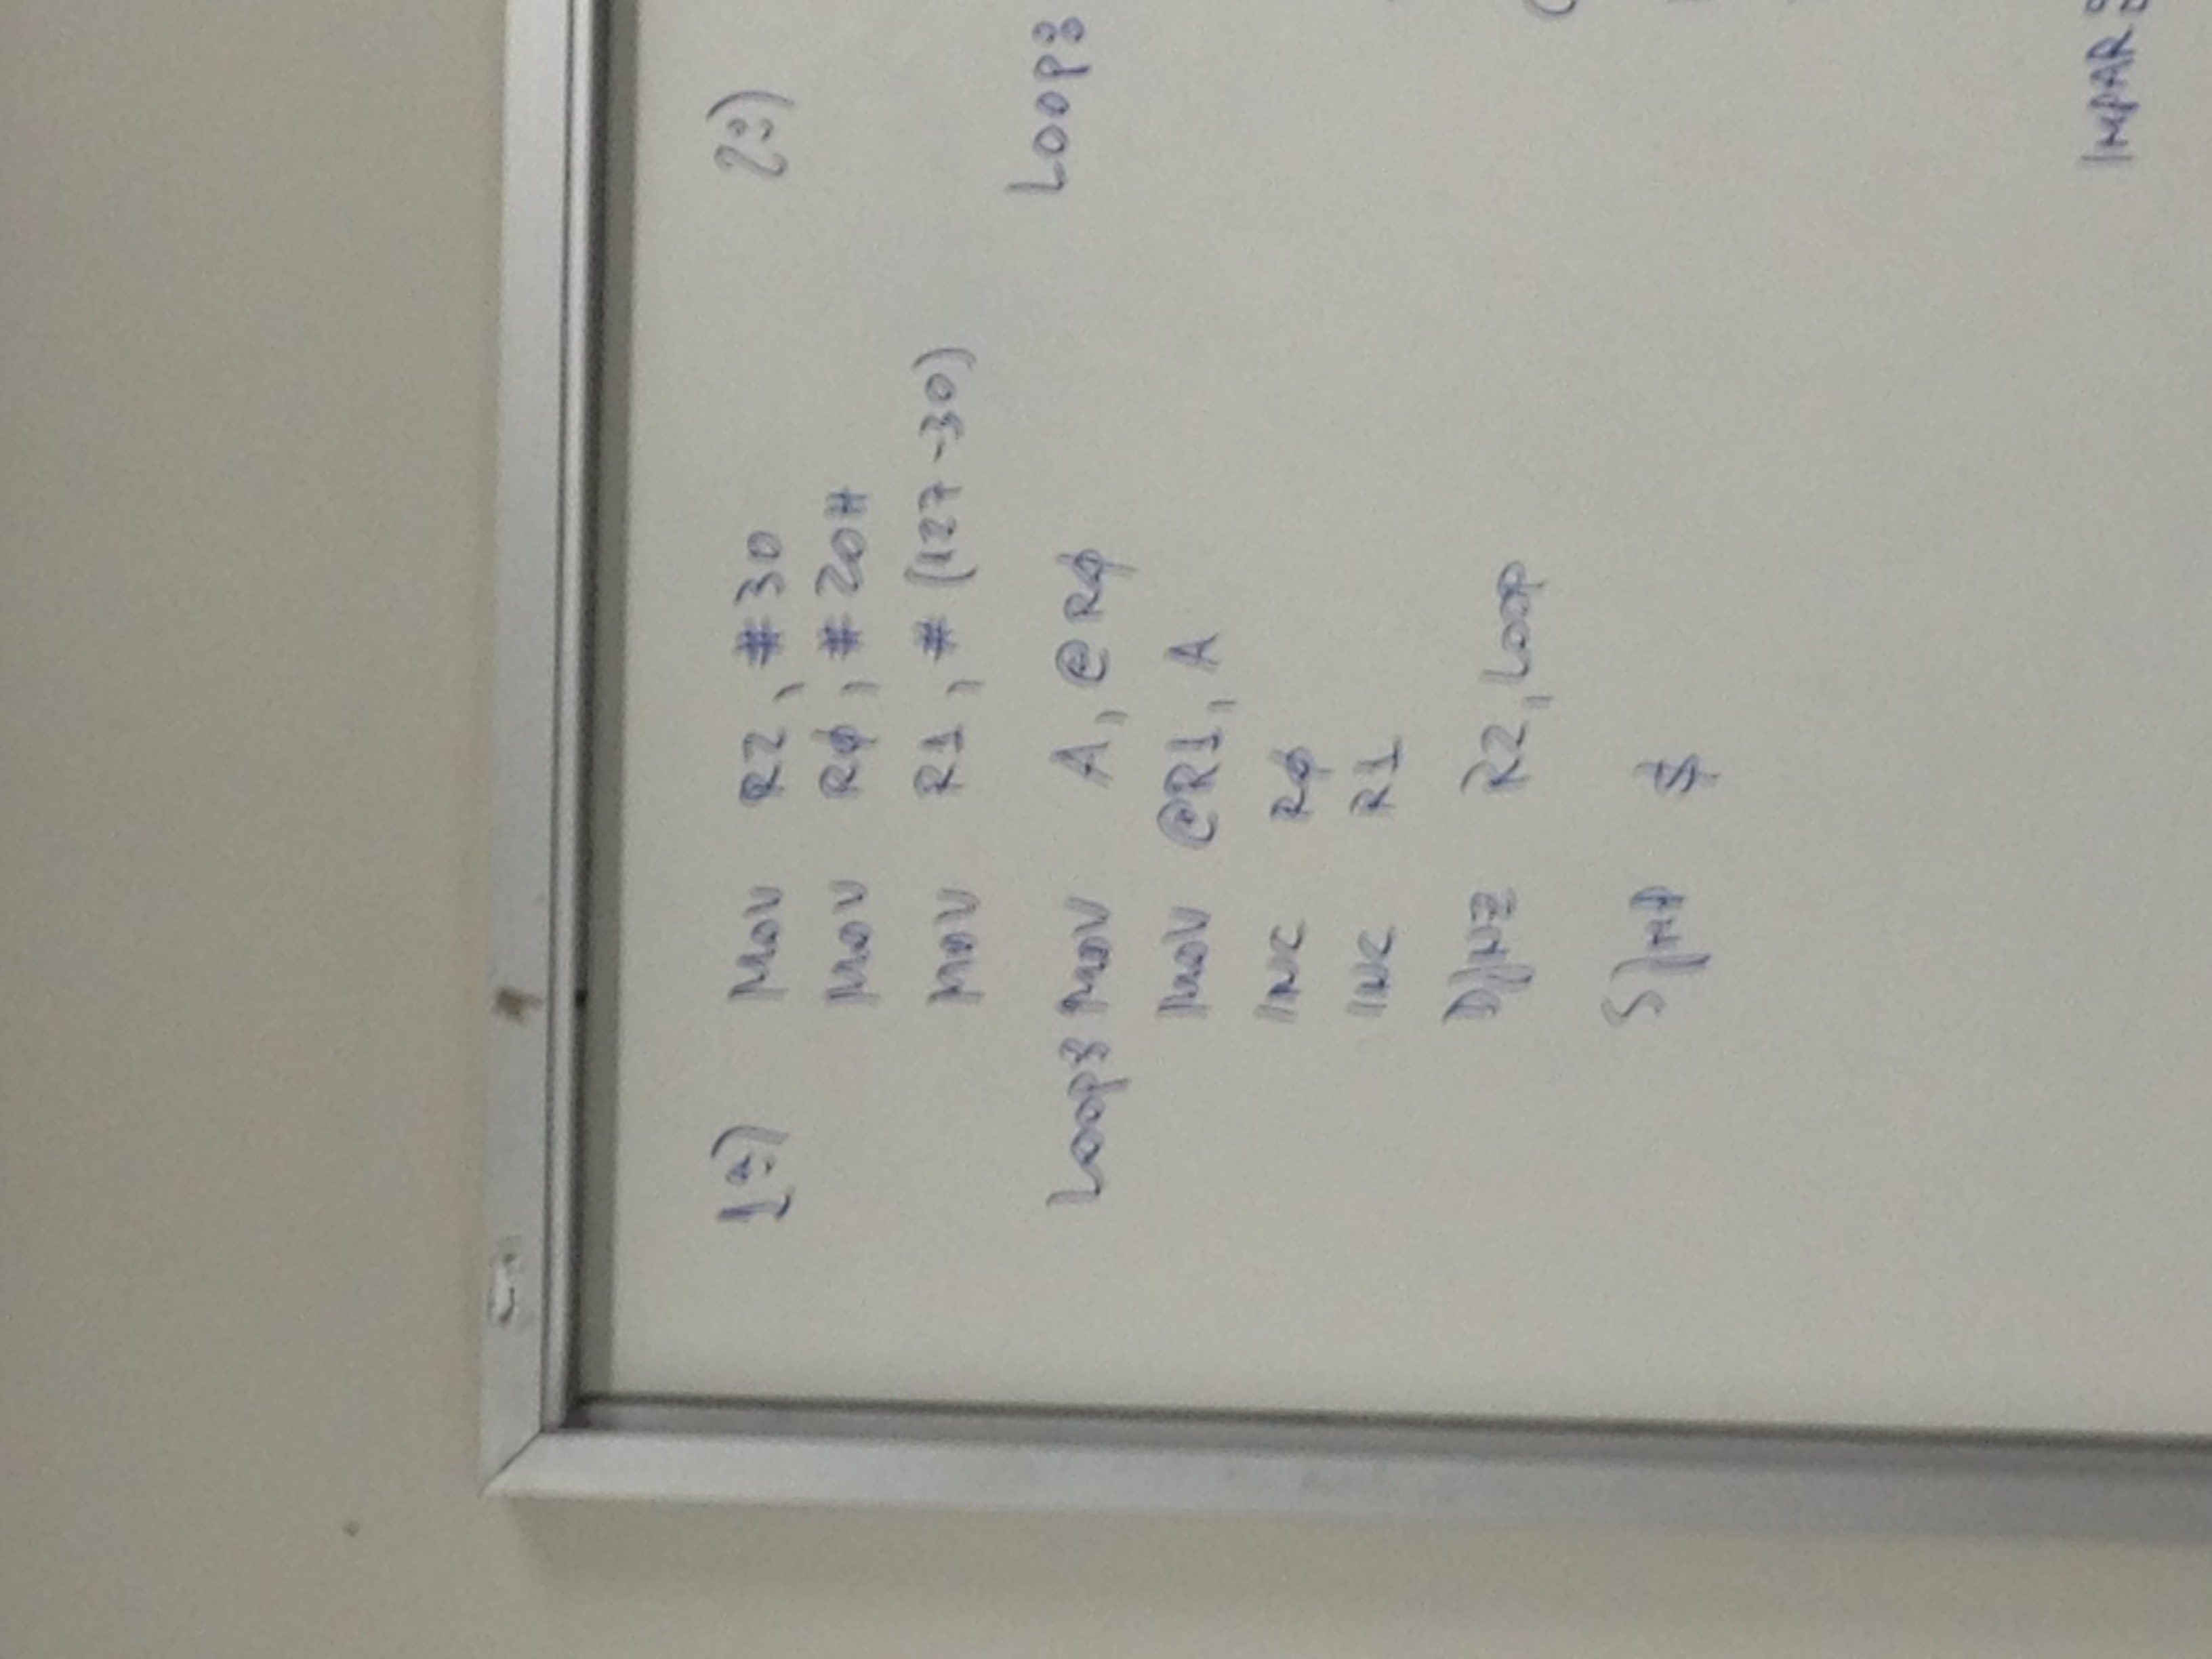 1ª)  MOV  R2, #30
MOV  RØ, #20H
MOV  R1, #(127-30)
LOOP: MOV  A, @RØ
MOV  @R1, A
INC  RØ
INC  R1
DJNZ  R2, LOOP
SJMP  $
2ª)
LOOP:
IMPAR: